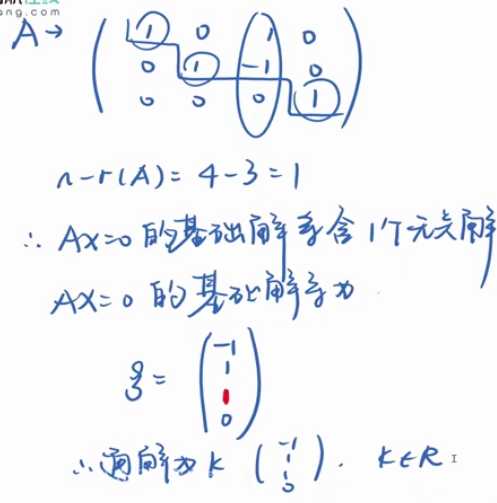 ng.com
A → ( 1 0 1 0
0 1 -1 0
0 0 0 1 )
n-r(A)= 4-3=1
∴ AX=0 的基础解系含1个无关解
AX=0 的基础解系为
ξ= ( -1
1
1
0 )
∴通解为 k ( -1
1
1
0 ). k∈R